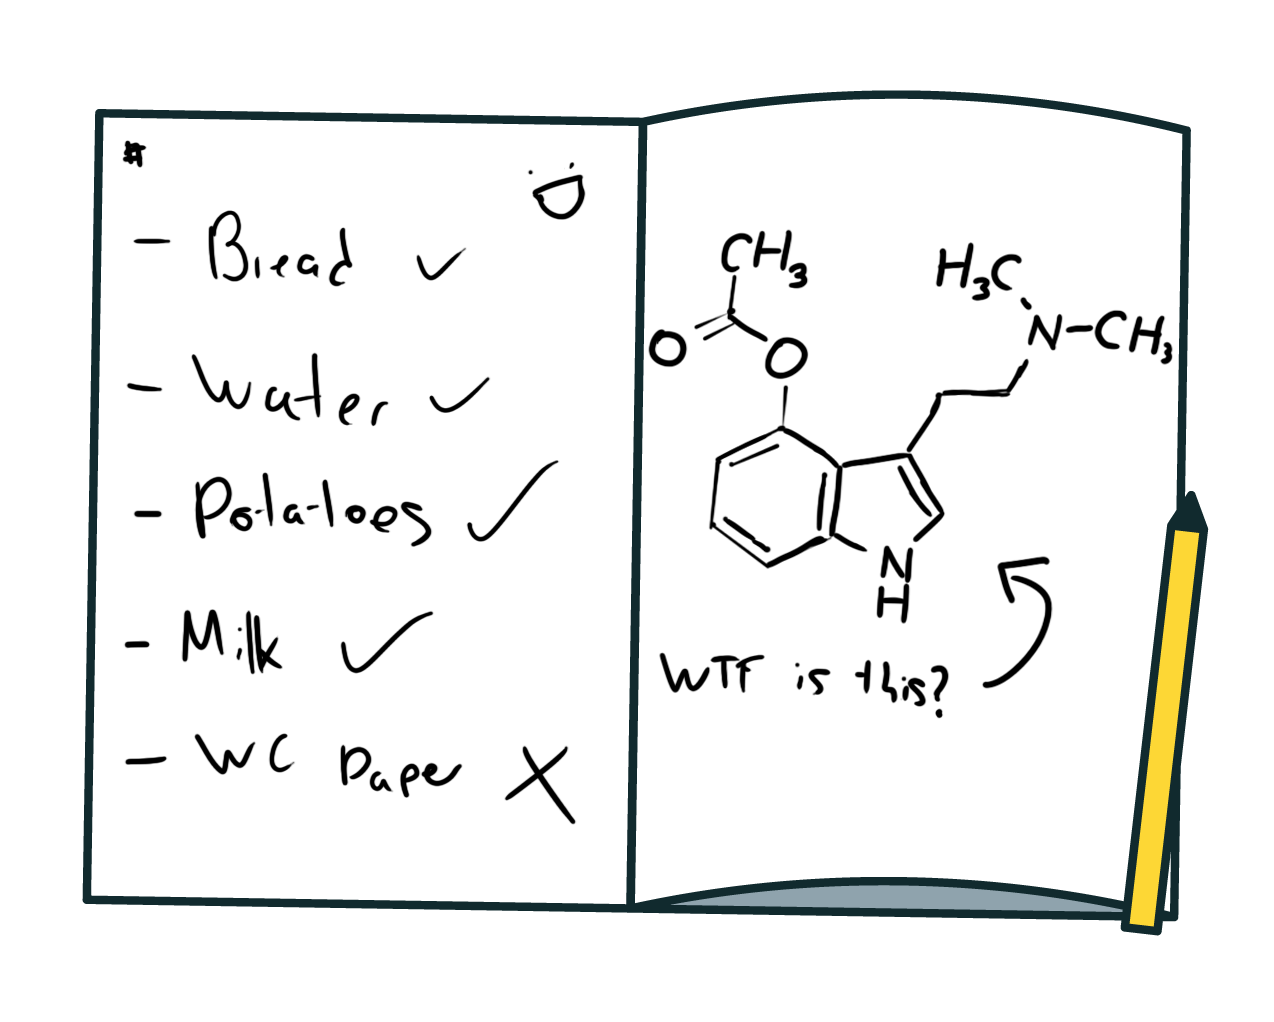 #
- Bread ✓
- Water ✓
- Potatoes ✓
- Milk ✓
- WC Paper X
CH3
H3C
O
O
N-CH3
N
H
WTF is this?